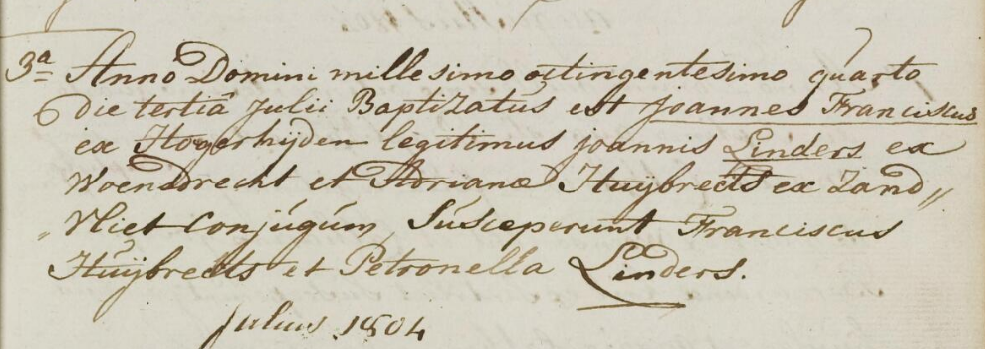 3ª Anno Domini millesimo octingentesimo quarto
die tertiâ Julii Baptizatus est Joannes Franciscus
ex Hogerhijden legitimus joannis Linders ex
Woensdrecht et Adrianæ Huijbrects ex Zand„
„vliet Conjugum, Susceperunt Franciscus
Huijbrects et Petronella Linders.
Julius 1804